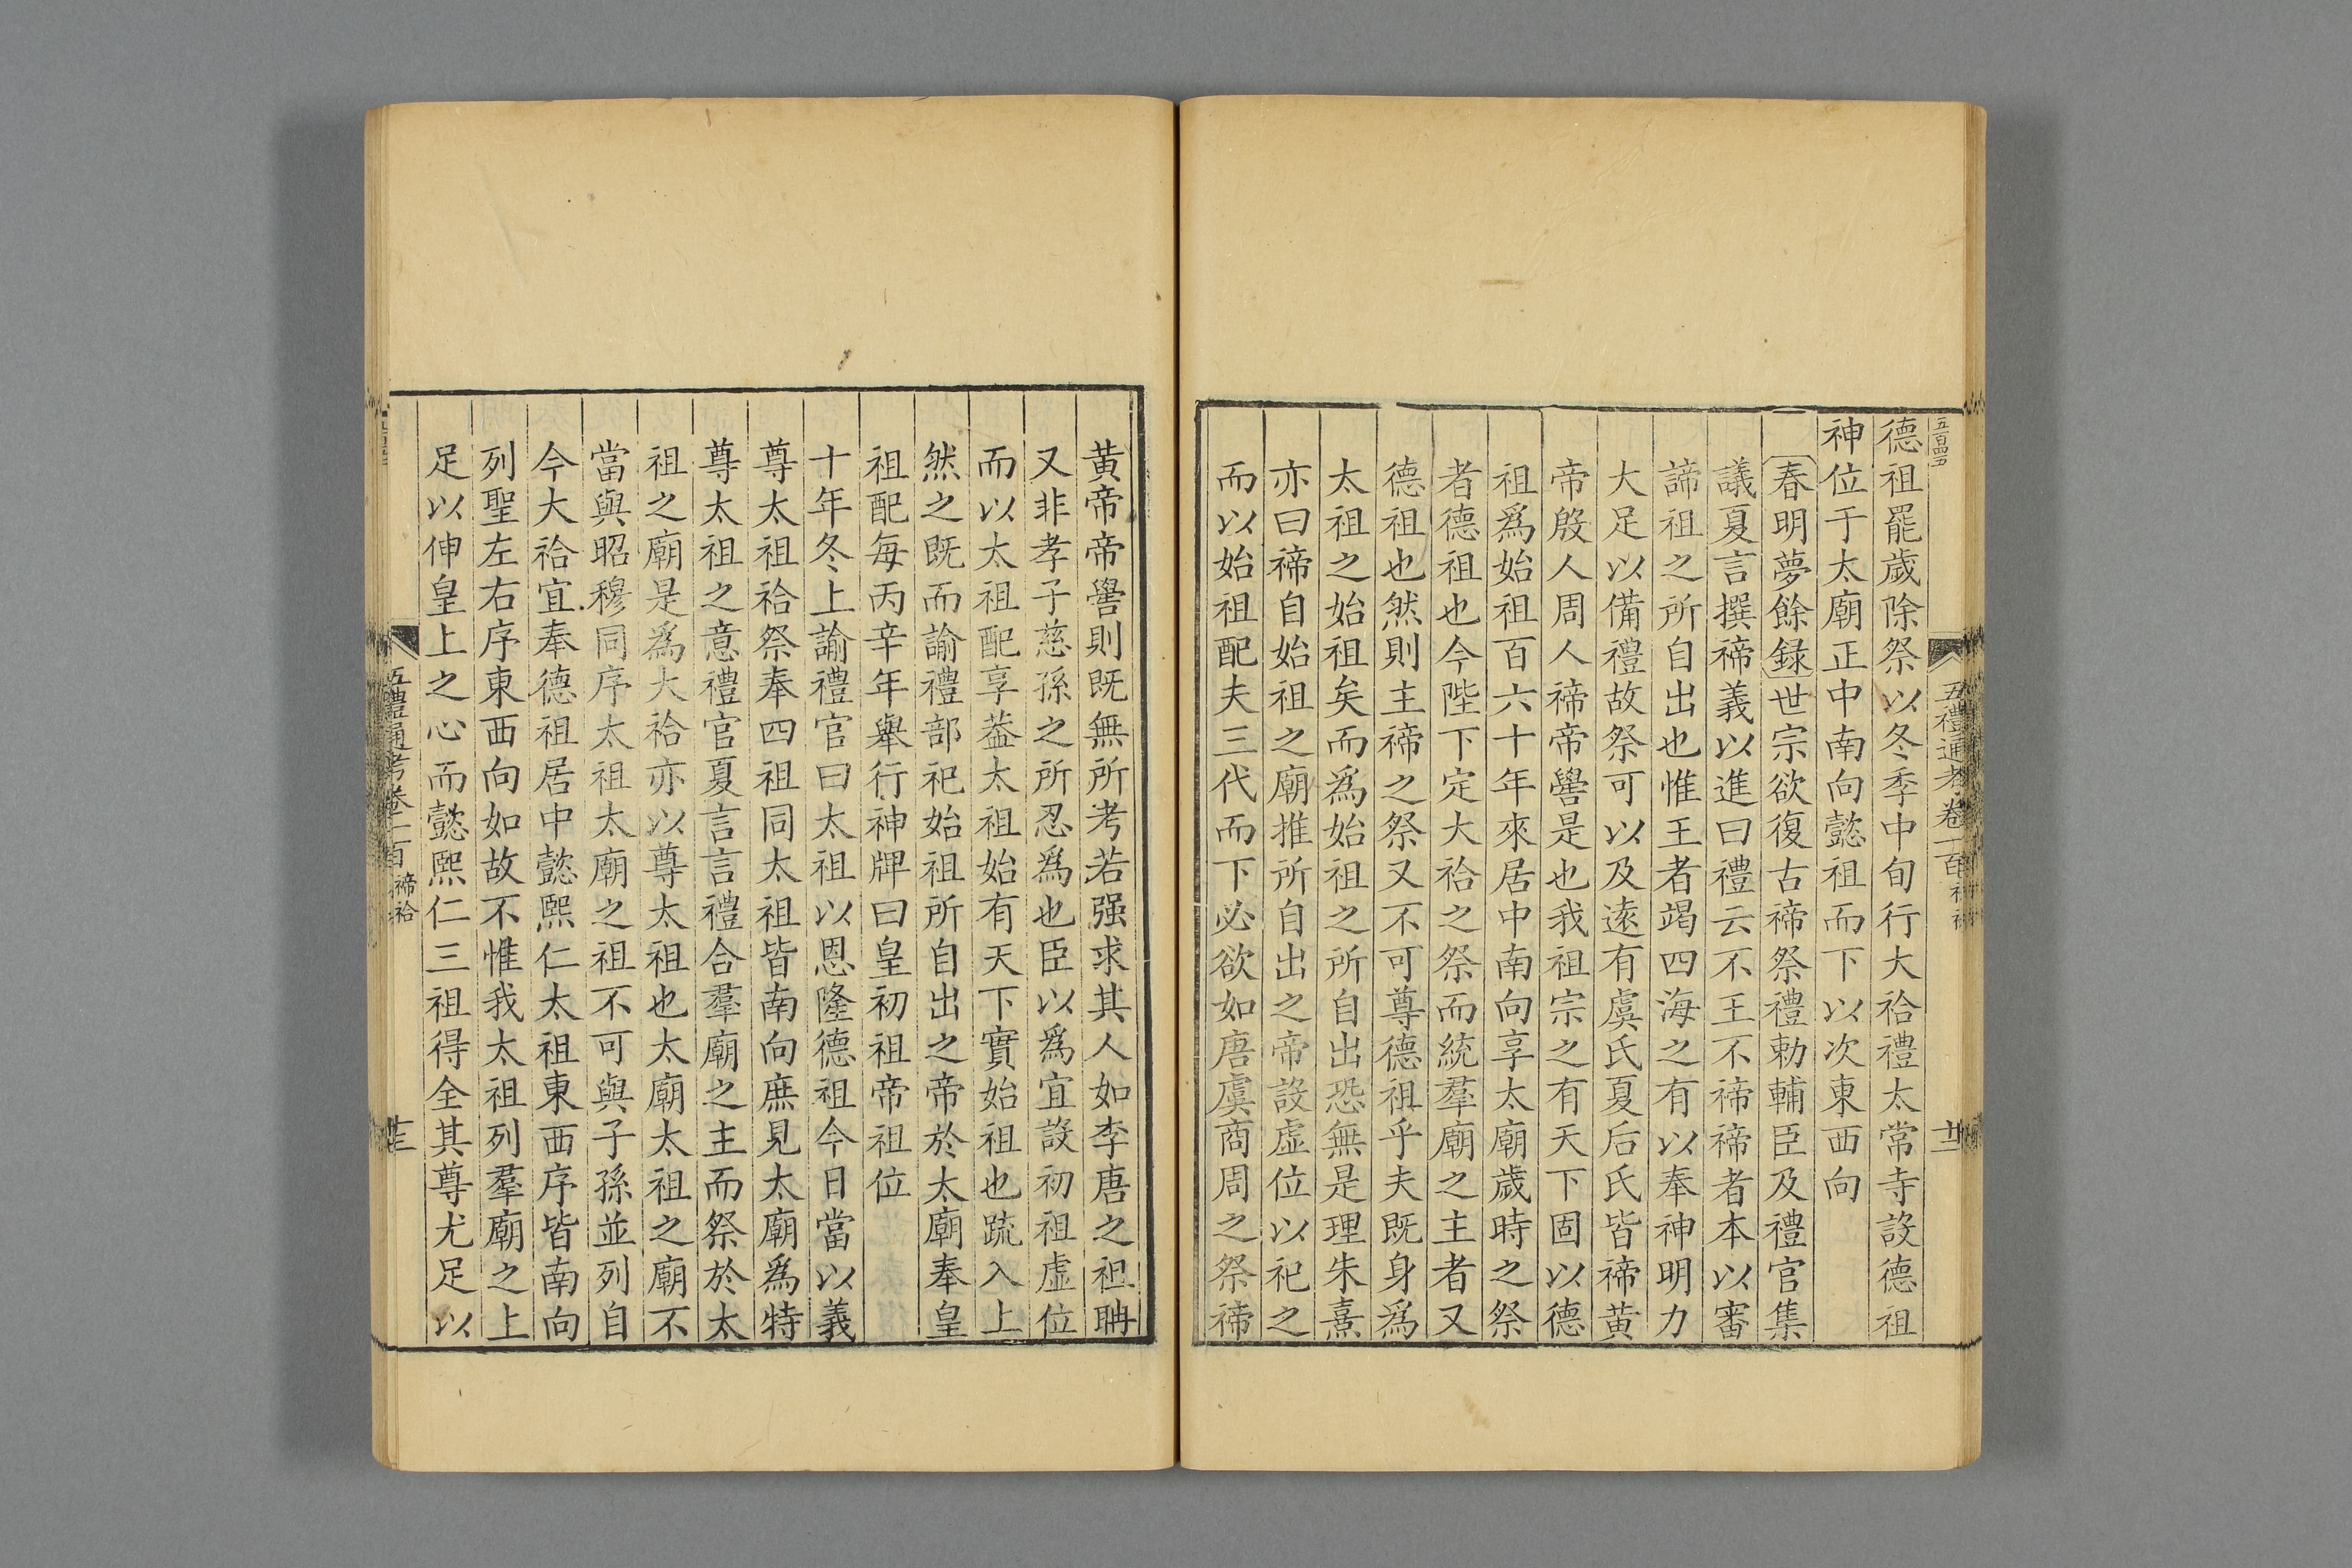 五百四五
五禮通考卷一百
德祖罷歲除祭以冬季中旬行大祫禮太常寺設德祖
神位于太廟正中南向懿祖而下以次東西向
春明夢餘録世宗欲復古禘祭禮勅輔臣及禮官集
議夏言撰禘義以進曰禮云不王不禘禘者本以審
諦祖之所自出也惟王者竭四海之有以奉神明力
大足以備禮故祭可以及逺有虞氏夏后氏皆禘黃
帝殷人周人禘帝嚳是也我祖宗之有天下固以德
祖爲始祖百六十年來居中南向享太廟歲時之祭
者德祖也今陛下定大祫之祭而統羣廟之主者又
德祖也然則主禘之祭又不可尊德祖乎夫既身爲
太祖之始祖矣而爲始祖之所自出恐無是理朱熹
亦曰禘自始祖之廟推所自出之帝設虛位以祀之
而以始祖配夫三代而下必欲如唐虞商周之祭禘
黃帝帝嚳則既無所考若强求其人如李唐之祖聃
又非孝子慈孫之所忍爲也臣以爲宜設初祖虛位
而以太祖配享葢太祖始有天下實始祖也疏入上
然之既而諭禮部祀始祖所自出之帝於太廟奉皇
祖配每丙辛年舉行神牌曰皇初祖帝祖位
十年冬上諭禮官曰太祖以恩隆德祖今日當以義
尊太祖祫祭奉四祖同太祖皆南向庶見太廟爲特
尊太祖之意禮官夏言言禮合羣廟之主而祭於太
祖之廟是爲大祫亦以尊太祖也太廟太祖之廟不
當與昭穆同序太祖太廟之祖不可與子孫並列自
今大祫宜奉德祖居中懿熙仁太祖東西序皆南向
列聖左右序東西向如故不惟我太祖列羣廟之上
足以伸皇上之心而懿熙仁三祖得全其尊尤足以
五禮通考卷一百 禘祫